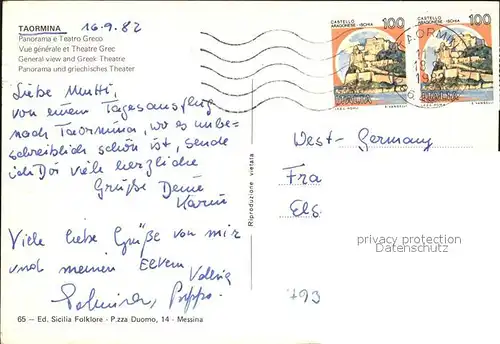 TAORMINA 16.9.82
Panorama e Teatro Greco
Vue générale et Theatre Grec
General view and Greek Theatre
Panorama und griechisches Theater
Liebe Mutti,
von einem Tagesausflug
nach Taormina, wo es unbe=
schreiblich schön ist, sende
ich Dir viele herzliche
Grüße Deine
Karin
Viele liebe Grüße von mir
und meinen Eltern
65 - Ed. Sicilia Folklore - P.zza Duomo, 14 - Messina
Riproduzione vietata
CASTELLO
ARAGONESE - ISCHIA
100
CASTELLO
ARAGONESE - ISCHIA
100
TAORMINA
West-Germany
Fra
Els
privacy protection
Datenschutz
793